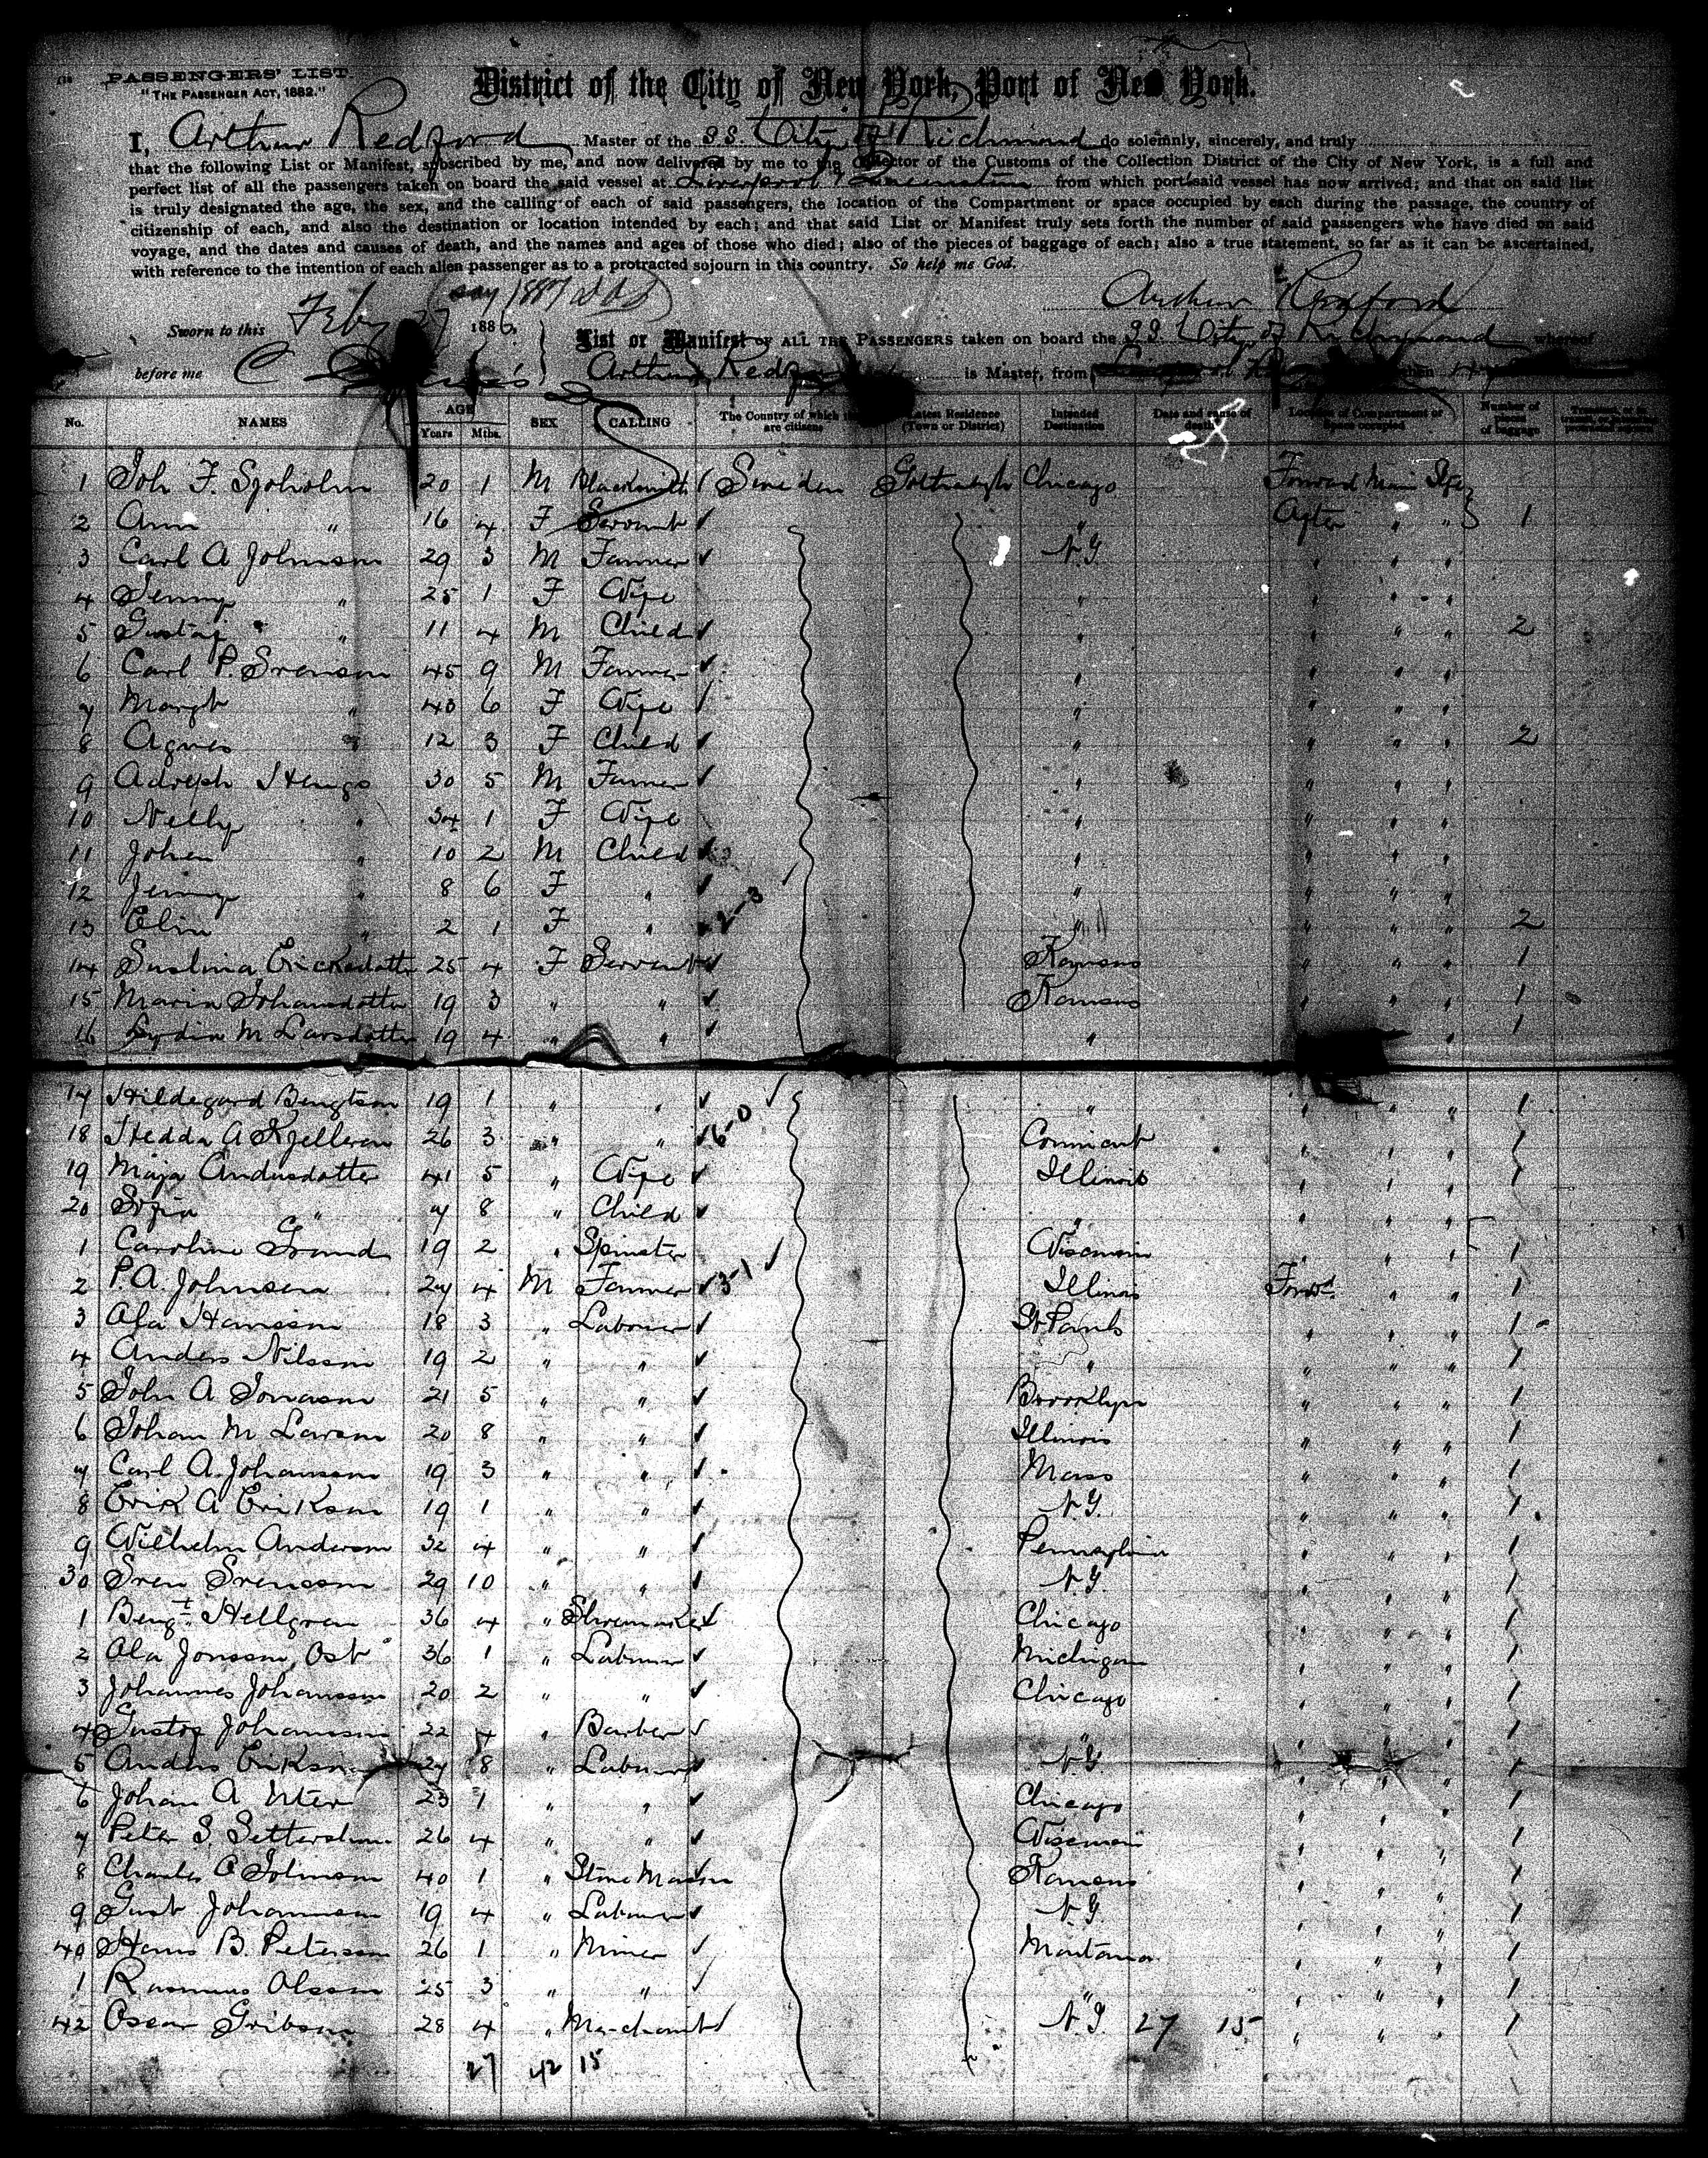 PASSENGERS' LIST.
"THE PASSENGER ACT, 1882."
District of the City of New York, Port of New York.
I, Arthur Redford Master of the SS City of Richmond do solemnly, sincerely, and truly
that the following List or Manifest, subscribed by me, and now delivered by me to the Collector of the Customs of the Collection District of the City of New York, is a full and
perfect list of all the passengers taken on board the said vessel at Liverpool & Queenstown from which port said vessel has now arrived; and that on said list
is truly designated the age, the sex, and the calling of each of said passengers, the location of the Compartment or space occupied by each during the passage, the country of
citizenship of each, and also the destination or location intended by each; and that said List or Manifest truly sets forth the number of said passengers who have died on said
voyage, and the dates and causes of death, and the names and ages of those who died; also of the pieces of baggage of each; also a true statement, so far as it can be ascertained,
with reference to the intention of each alien passenger as to a protracted sojourn in this country. So help me God.
say 1887
Arthur Redford
Sworn to this Feby 27 1886
List or Manifest OF ALL THE PASSENGERS taken on board the SS City of Richmond whereof
before me C Arthur Redford is Master, from Liverpool
No. NAMES AGE Years Mths. SEX CALLING The Country of which they are citizens Latest Residence (Town or District) Intended Destination Date and cause of death Location of Compartment or Space occupied Number of pieces of baggage
1 Joh F. Sjoholm 20 1 M Blacksmith Sweden Chicago Forward Main Stge
2 Ann " 16 4 F Servant " After " " 1
3 Carl A Johnson 29 3 M Farmer N.Y. " " "
4 Jenny " 25 1 F Wife " " " "
5 Gustaf " 11 4 M Child " " " " 2
6 Carl P. Svenson 45 9 M Farmer " " " "
7 Margt " 40 6 F Wife " " " "
8 Agnes " 12 3 F Child " " " " 2
9 Adolph 30 5 M Farmer " " " "
10 Nelly " 34 1 F Wife " " " "
11 Johan " 10 2 M Child " " " "
12 Jenny " 8 6 F " " " " "
13 Elin " 2 1 F " " " " " 2
14 Ericksdotter 25 4 F Servant Kansas " " " 1
15 Maria Johansdotter 19 3 " " Kansas " " " 1
16 Lydia M Larsdotter 19 4 " " " " 1
17 Hildegard Bengtson 19 1 " " " " " " 1
18 Hedda A Kjellgren 26 3 " " " " " 1
19 Maja Andersdotter 41 5 " Wife Illinois " " " 1
20 Sofia " 7 8 " Child " " " "
1 Caroline 19 2 " Spinster Wisconsin " " " 1
2 P.A. Johnson 27 4 M Farmer Illinois Forwd " " 1
3 Ola Hansson 18 3 " Labourer St Pauls " " " 1
4 Anders Nilsson 19 2 " " " " " " 1
5 John A Jonason 21 5 " " Brooklyn " " " 1
6 Johan M Larson 20 8 " " Illinois " " " 1
7 Carl A. Johansson 19 3 " " Mass " " " 1
8 Erik A Erikson 19 1 " " N.Y. " " " 1
9 Wilhelm Anderson 32 4 " " Pennsylvania " " " 1
30 Sven Svensson 29 10 " " N.Y. " " " 1
1 Bengt Hellgren 36 4 " Shoemaker Chicago " " " 1
2 Ola Jonsson Ost 36 1 " Labourer Michigan " " " 1
3 Johannes Johansson 20 2 " " Chicago " " " 1
4 Gustof Johansson 22 4 " Barber " " " " 1
5 Anders Erikson 27 8 " Labourer N.Y. " " " 1
6 Johan A 23 1 " " Chicago " " " 1
7 Peter S. 26 4 " " Wisconsin " " " 1
8 Charles Johnson 40 1 " Stone Mason Kansas " " " 1
9 Gust Johannson 19 4 " Labourer N.Y. " " " 1
40 Hans B. Peterson 26 1 " Miner Montana " " " 1
1 Rasmus Olsson 25 3 " " " " " " 1
42 Oscar 28 4 " Merchant N.Y. 27 15 " " " 1
27 42 15